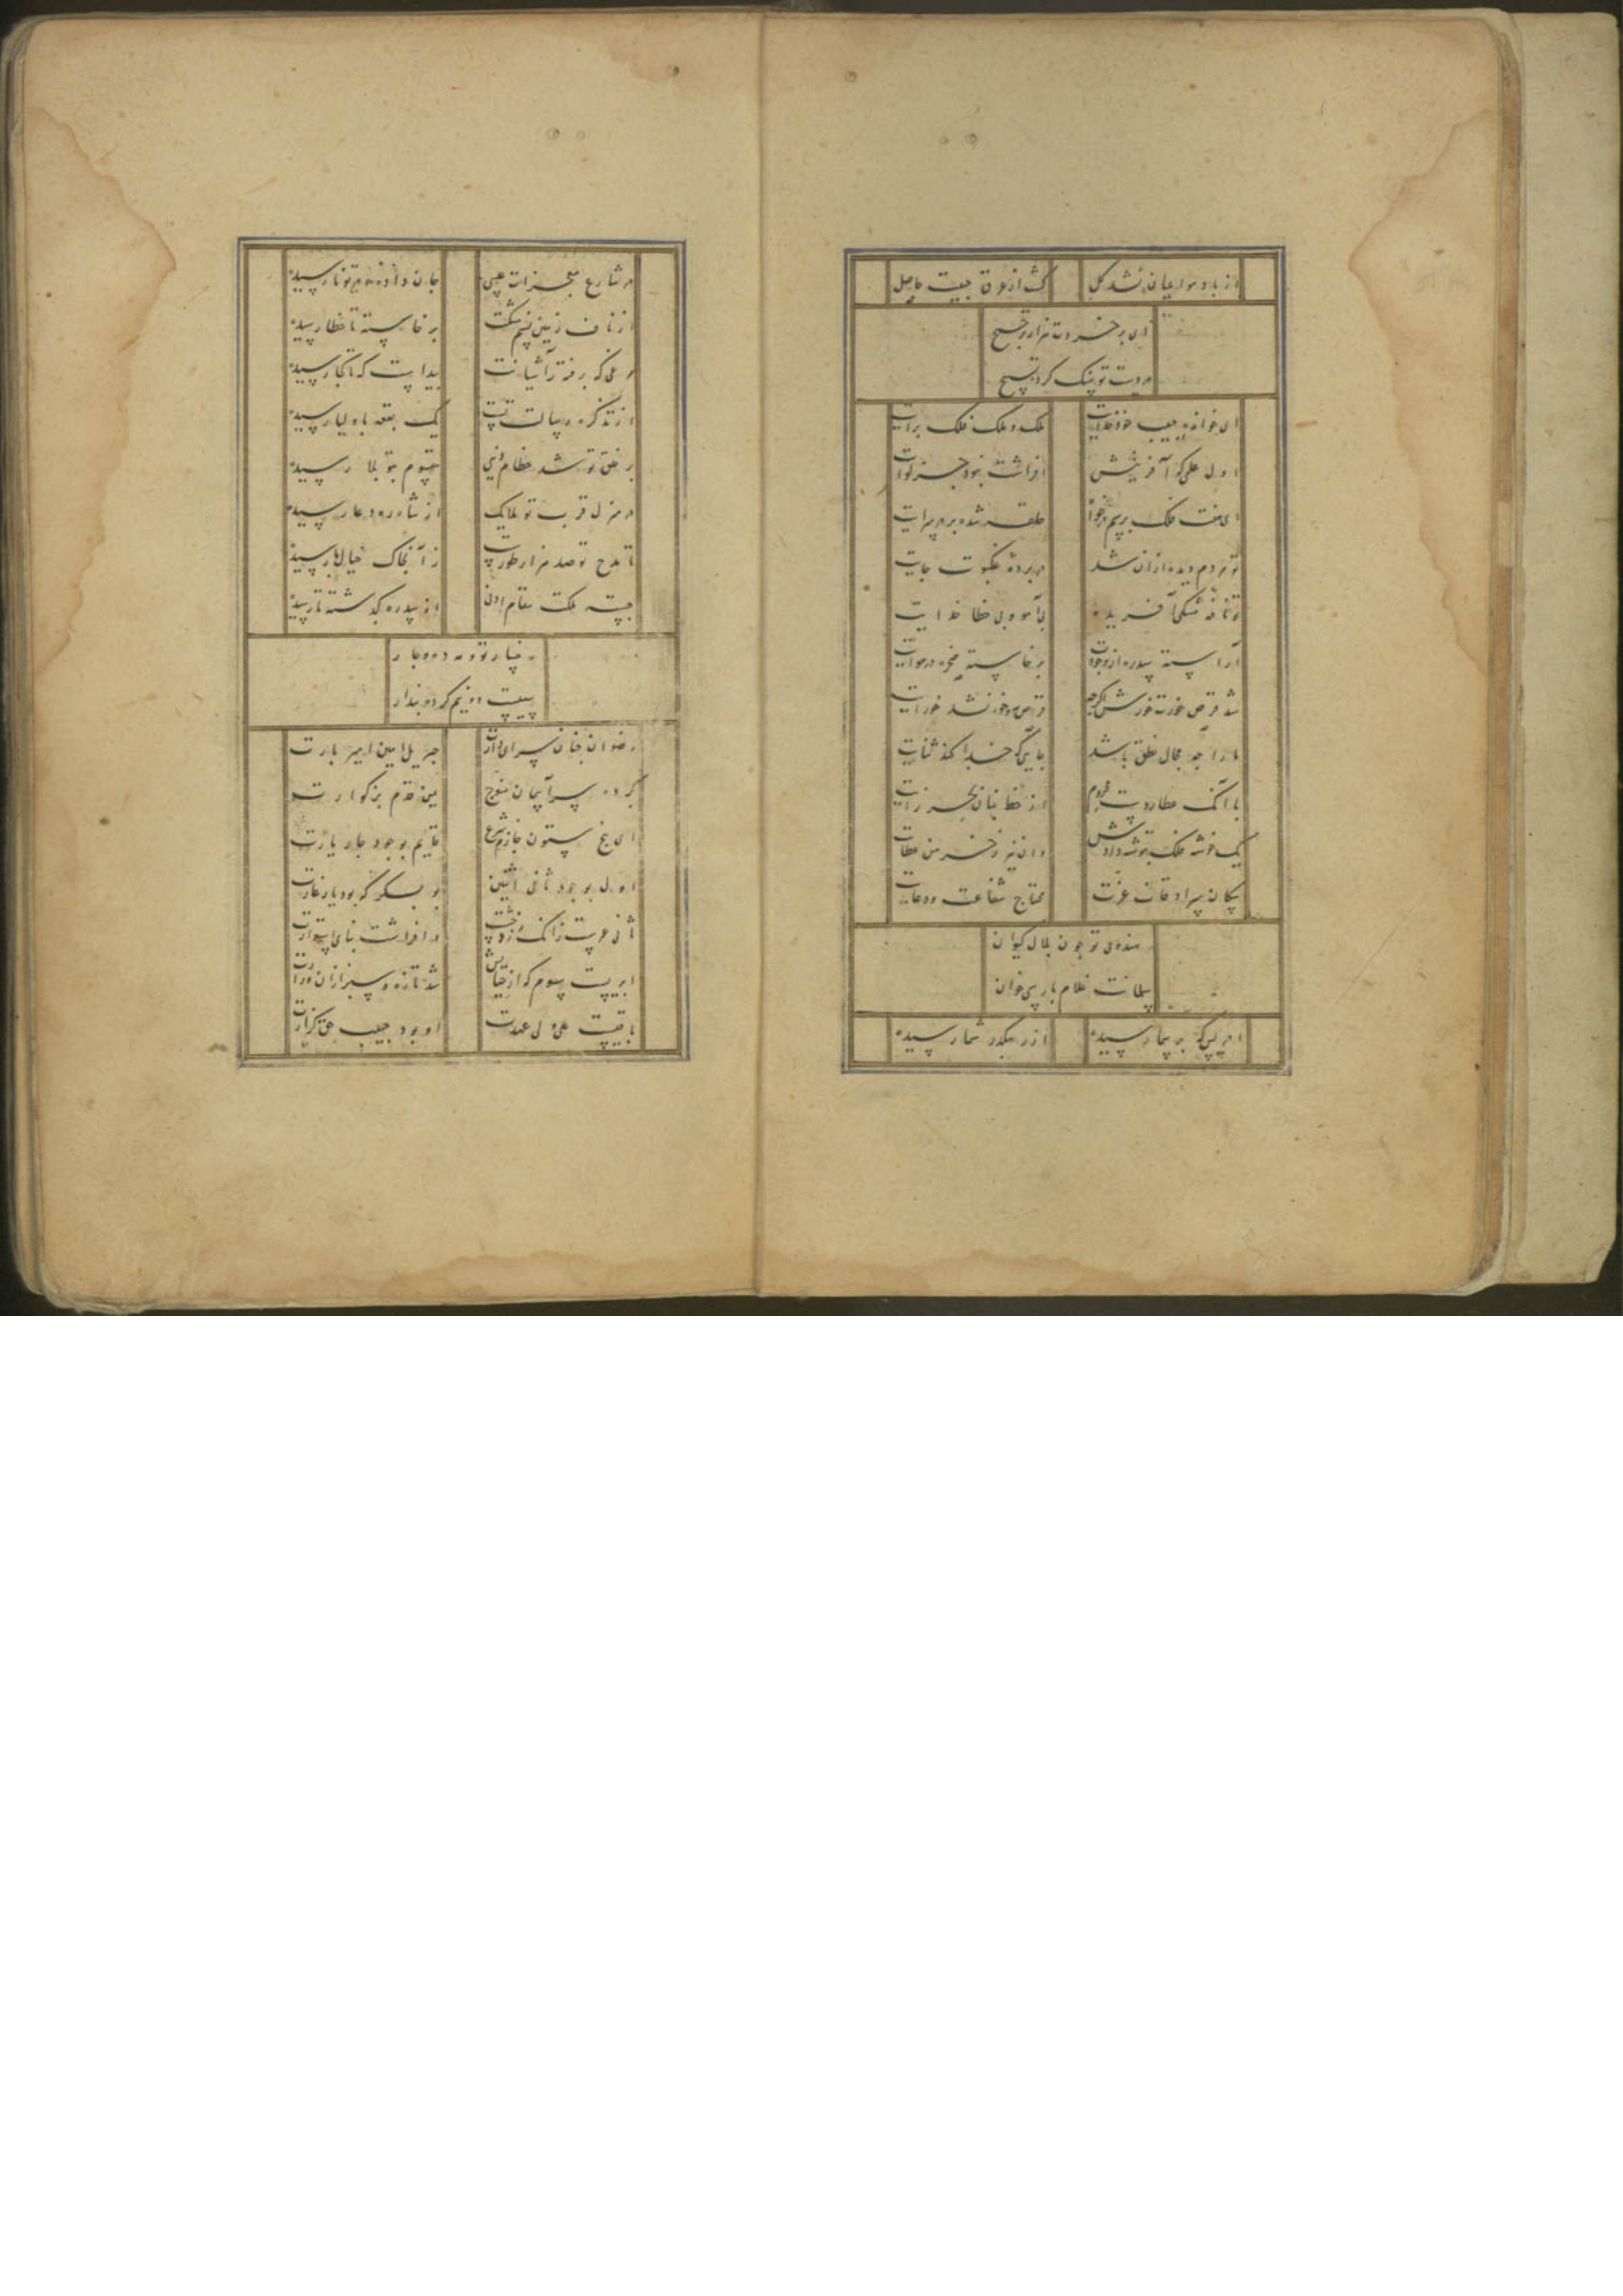 از باد هوا عیان نشد کل کش از عرق جبیت حاصل
ای بر خرت هزار ترجیح
در دست تو سنک کرد تسبیح
ای خوانده حبیب خود خدایت ملک و ملک فلک برایت
اول علمی که آفرینش افراشت نبود جز لوایت
ای هفت فلک برسم حلقه شده بر در سرایت
تو مردم دیده ازان شد در پرده عنکبوت جایت
تو نافه مشکی آفریده بی آهو و بی خطا خدایت
آراسته سدره از وجودت برخاسته صخره در هوایت
شد قرص خورت خورش اگرچه قرص مه و خور نشد خورایت
ما را چه مجال نطق باشد جایی که خدا کند ثنایت
با آنک عطارد است از خط بنان
یک خوشه فلک بتوشه دادش وان نیز ز خرمن عطایت
سکان سرادقات عزت محتاج شفاعت و دعایت
هندوی تو چون بلال کیوان
سلمانت غلام پارسی خوان
از رهکذر شما رسیده
در شارع معجزات عیسی جان داده و تو نارسیده
از ناف زمین نسیم مشکت برخاسته تا خطا رسیده
وحی که رفته ز آشیانت پیداست که تا کجا رسیده
از تذکره رسالت تست یک بقعه باولیا رسیده
بر خلق تو شد عظام بتو بما رسیده
در منزل قرب تو ملایک از شاه رود عا رسیده
تا مدح تو صد هزار طورست زانجاک خیال ما رسیده
جسته ملکت مقام ادنی از سدره کذشته تا رسیده
رخسار تو و مه ده و چار
سیبیست دو نیم کرده پندار
رضوان جنان سرای دارت جبریل امین امیر بارت
کرده سر آسمان یمن قدم بزرکوارت
ای پنج ستون خانه شرع قایم بوجود چار یارت
اول بوجود ثانی اثنین بوبکر که بود یار غارت
ثانی عمرست زانک زد خشت و افراشت بنای استوارت
ابریست سوم که از حیایش شد تازه و سبز ازان
باقیست علی ولی عهدت او بود حبیب